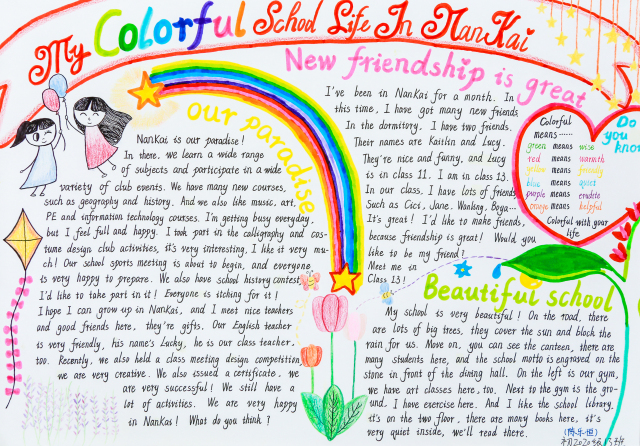 My Colorful School Life In NanKai
New friendship is great
our paradise
NanKai is our paradise!
In there. we learn a wide range
of subjects and participate in a wide
variety of club events. We have many new courses,
such as geography and history. And we also like music, art,
PE and information technology courses. I'm getting busy everyday,
but I feel full and happy. I took part in the calligraphy and cos-
tume design club activities, it's very interesting, I like it very mu-
ch! Our school sports meeting is about to begin, and everyone
is very happy to prepare. We also have school history contest
I'd like to take part in it! Everyone is itching for it!
I hope I can grow up in NanKai, and I meet nice teachers
and good friends here, they're gifts. Our English teacher
is very friendly, his name's Lucky, he is our class teacher,
too. Recently, we also held a class meeting design competition
we are very creative. We also issued a certificate. we
are very successful! We still have a
lot of activities. We are very happy
in NanKai! What do you think?
I've been in NanKai for a month. In
this time, I have got many new friends
In the dormitory, I have two friends.
Their names are Kaitlin and Lucy.
They're nice and funny, and Lucy
is in class 11. I am in class 13.
In our class, I have lots of friends
Such as Cici, Jane, Wanling, Boya...
It's great! I'd like to make friends,
because friendship is great! Would you
like to be my friend!
Meet me in
Class 13!
Do
you
know
Colorful
means ......
green means wise
red means warmth
yellow means friendly
blue means quiet
purple means erudite
orange means helpful
Colorful with your
life
Beautiful school
My school is very beautiful! On the road, there
are lots of big trees, they cover the sun and block the
rain for us. Move on, you can see the canteen, there are
many students here, and the school motto is engraved on the
stone in front of the dining hall. On the left is our gym,
we have art classes here, too. Next to the gym is the gro-
und. I have exercise here. And I like the school library.
it's on the two floor, there are many books here, it's
very quiet inside, we'll read there.
初2020级13班